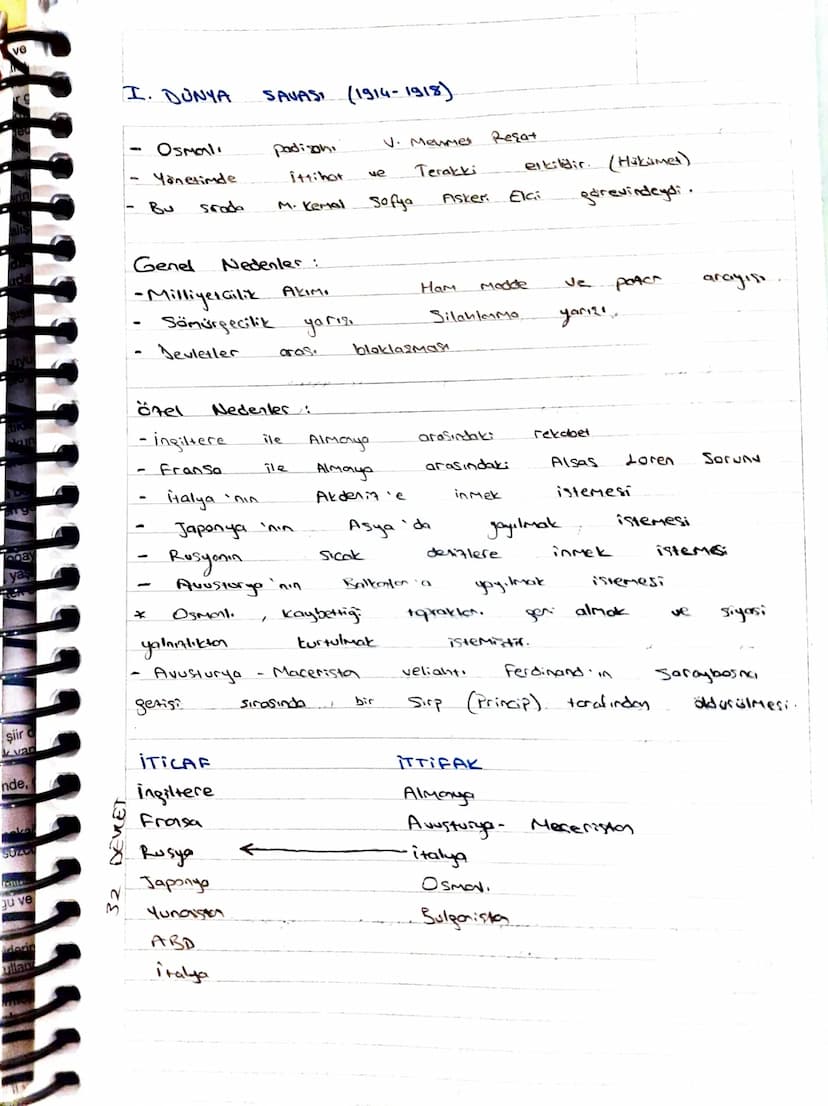 I. DÜNYA SAVAŞI (1914-1918)
- Osmanlı padişahı V. Mehmet Reşat
- Yönetimde İttihat ve Terakki etkilidir. (Hükümet)
- Bu sırada M. Kemal Sofya Askeri Elçi görevindeydi.
Genel Nedenler :
- Milliyetçilik Akımı Ham madde ve pazar arayışı.
- Sömürgecilik yarışı Silahlanma yarışı.
- Devletler arası bloklaşması
Özel Nedenler :
- İngiltere ile Almanya arasındaki rekabet
- Fransa ile Almanya arasındaki Alsas Loren Sorunu
- İtalya'nın Akdeniz'e inmek istemesi
- Japonya'nın Asya'da yayılmak istemesi
- Rusyanın sıcak denizlere inmek istemesi
- Avusturya'nın Balkanlar'a yayılmak istemesi
* Osmanlı, kaybettiği toprakları geri almak ve siyasi
yalnızlıktan kurtulmak istemiştir.
- Avusturya - Macaristan veliahtı Ferdinand'ın Saraybosna
gezisi sırasında, bir Sırp (Princip) tarafından öldürülmesi.
İTİLAF İTTİFAK
İngiltere Almanya
Fransa Avusturya - Macaristan
Rusya ← İtalya
Japonya Osmanlı
Yunanistan Bulgaristan
ABD
İtalya
32 DEVLET
ve
şiir
nde,
gu ve